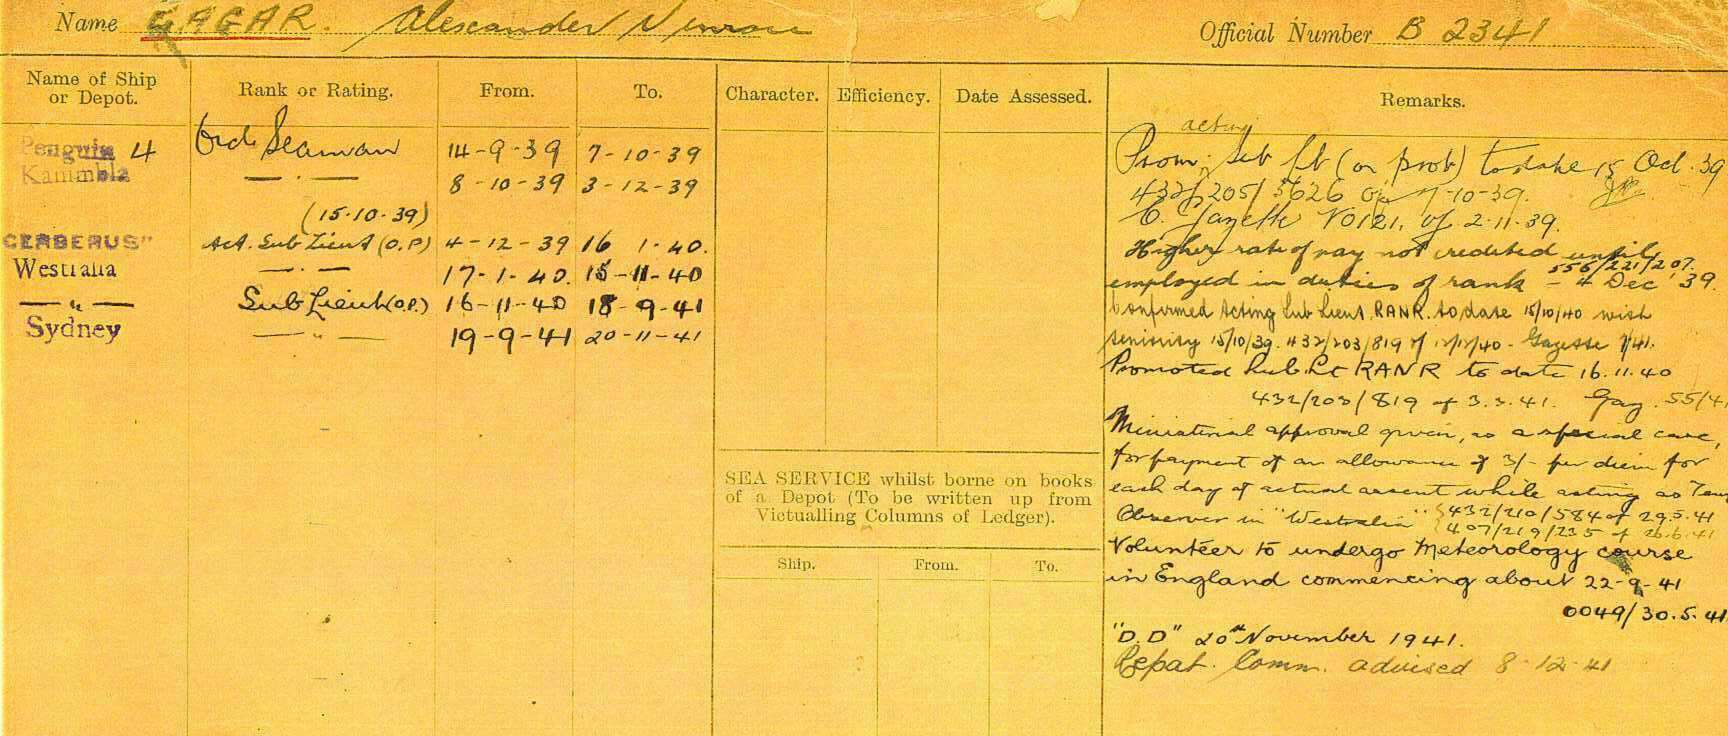 Name EAGAR. Alexander Munro Official Number B 2341
Name of Ship or Depot. Rank or Rating. From. To. Character. Efficiency. Date Assessed. Remarks.
Penguin 4 Ord Seaman 14-9-39 7-10-39
Kanimbla — . — 8-10-39 3-12-39
(15.10.39)
CERBERUS" Act. Sub Lieut (O.P) 4-12-39 16 1-40.
Westralia — . — 17-1-40. 15-11-40
— " — Sub Lieut (O.P.) 16-11-40 18-9-41
Sydney — " — 19-9-41 20-11-41
acting
Prom: Sub Lt (on prob) to date 15 Oct. 39
432/205/3626 of 7-10-39.
C. Gazette No 121. of 2.11.39.
Higher rate of pay not credited until
556/221/207.
employed in duties of rank – 4 Dec '39.
Confirmed Acting Sub Lieut. RANR. to date 15/10/40 with
seniority 15/10/39. 432/203/819 of 12/12/40 - Gazette 7/41.
Promoted Sub. Lt RANR to date 16.11.40
432/203/819 of 3.3.41. Gaz. 55/41
Ministerial approval given, as a special case,
for payment of an allowance of 3/- per diem for
each day of actual ascent while acting as
Observer in "Westralia" 432/210/584 of 29.5.41
407/219/235 of 26.6.41
Volunteer to undergo Meteorology course
in England commencing about 22-9-41
0049/30.5.41
"D.D" 20th November 1941.
Repat. Comm. advised 8-12-41
SEA SERVICE whilst borne on books
of a Depot (To be written up from
Victualling Columns of Ledger).
Ship. From. To.